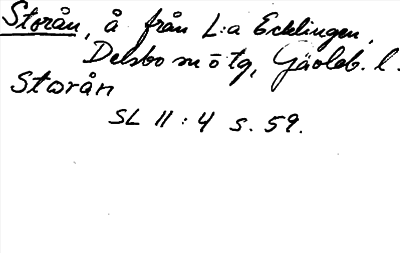 Storån, å från L:a Ecklingen,
Delsbo sn ö tg, Gävleb. l.
Storån
SL 11 : 4 s. 59.